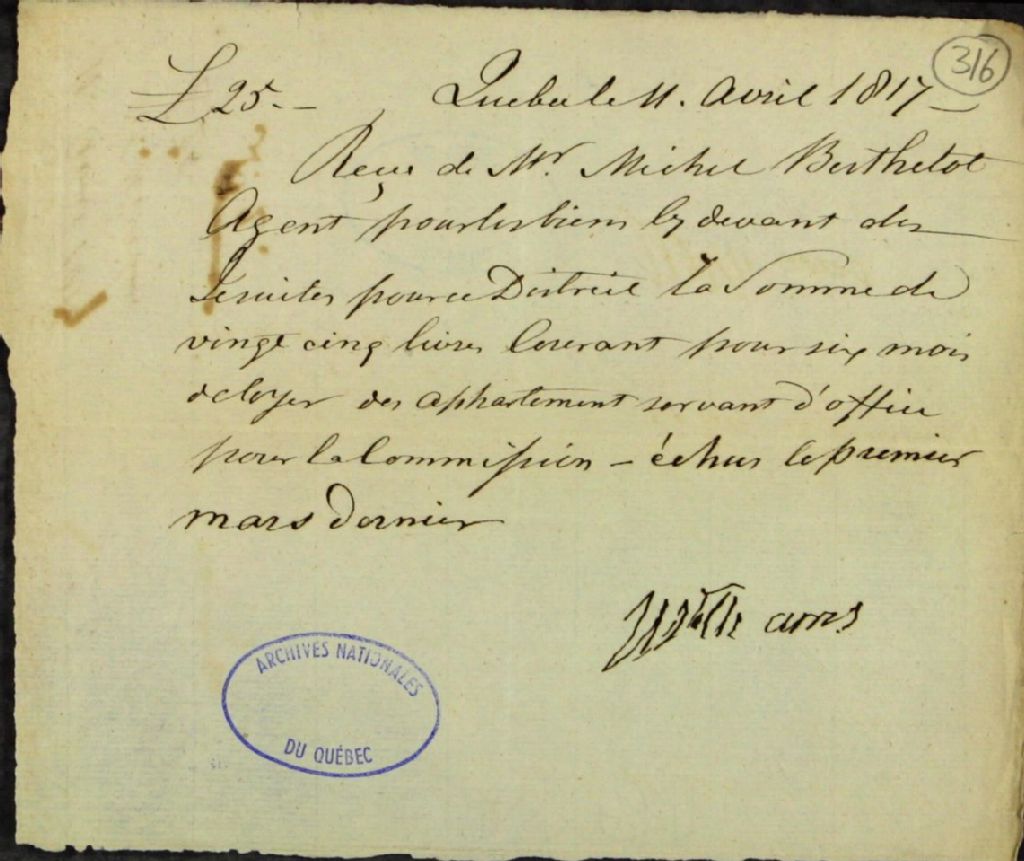 316
£ 25.- Quebec le 11. Avril 1817
Reçu de Mr. Michel Berthelot
Agent pour les biens cy devant des
Jesuites pour ce District la Somme de
vingt cinq livres Courant pour six mois
de loyer des appartement servant d'office
pour la Commission – échus le premier
mars dernier
ARCHIVES NATIONALES
DU QUÉBEC